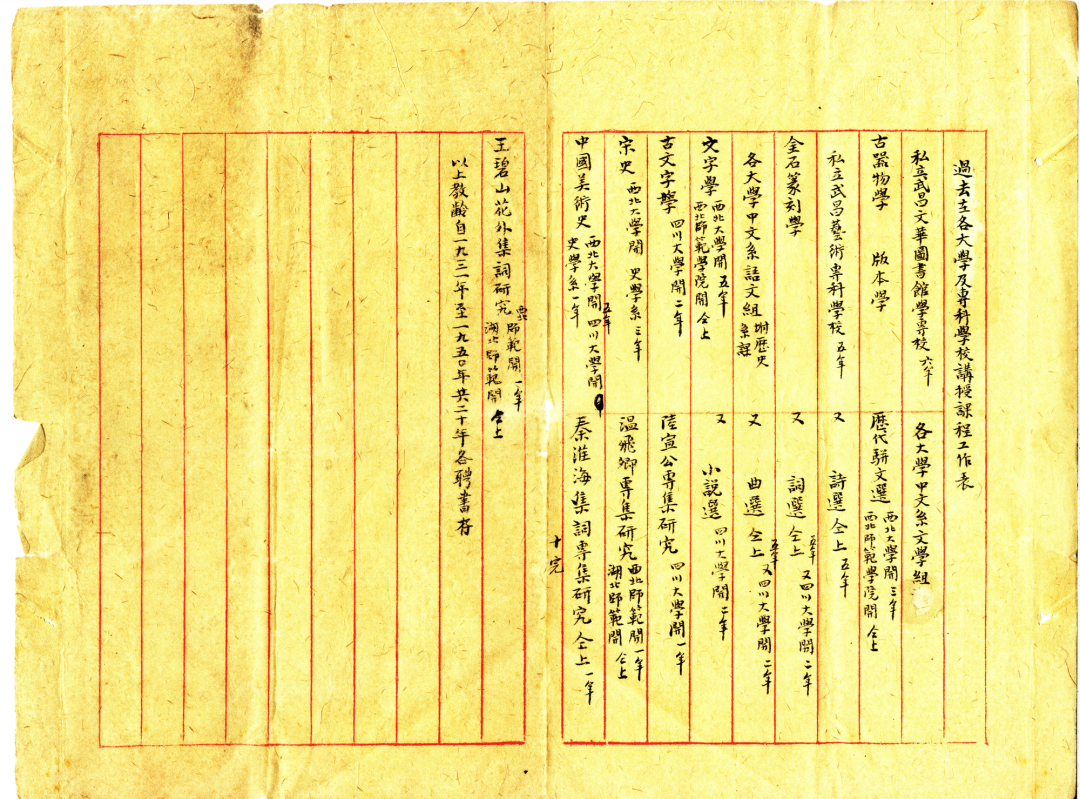 過去在各大學及專科學校講授課程工作表
私立武昌文華圖書館學專校 六年
古器物學 版本學
私立武昌藝術專科學校 五年
金石篆刻學
各大學中文系語文組 附歷史系課
文字學 西北大學開 五年 西北師範學院開 仝上
古文字學 四川大學開 二年
宋史 西北大學開 史學系 三年
中國美術史 西北大學開 五年 四川大學開 史學系 一年
各大學中文系文學組
歷代駢文選 西北大學開 三年 西北師範學院開 仝上
又 詩選 仝上 五年
又 詞選 仝上 五年 又四川大學開 二年
又 曲選 仝上 五年 又四川大學開 二年
又 小說選 四川大學開 二年
陸宣公專集研究 四川大學開 一年
溫飛卿專集研究 西北師範開 一年 湖北師範開 仝上
秦淮海集詞專集研究 仝上 一年
十完
王碧山花外集詞研究 西北師範開 一年 湖北師範開 仝上
以上教齡自一九三一年至一九五〇年共二十年各聘書存